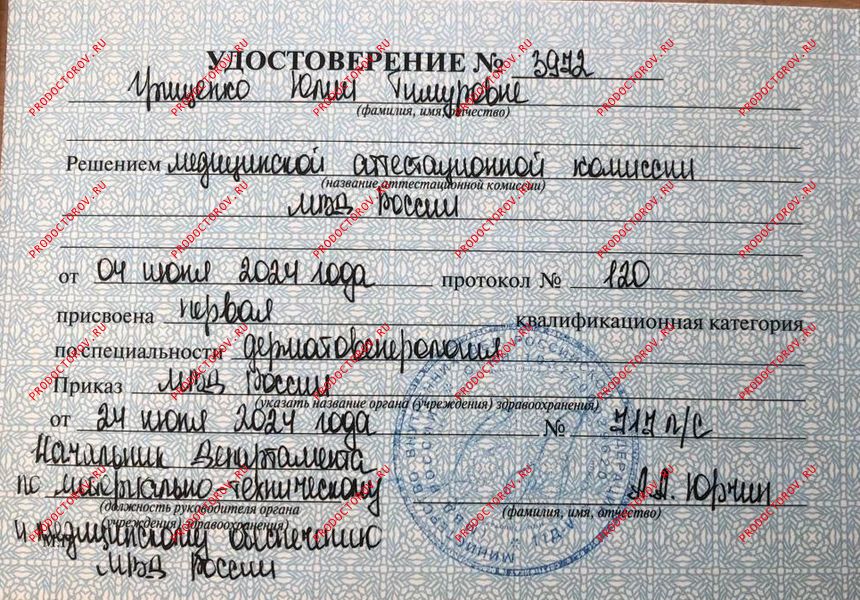 УДОСТОВЕРЕНИЕ № 3972
Грищенко Юлии Тимуровне
(фамилия, имя, отчество)
Решением медицинской аттестационной комиссии
(название аттестационной комиссии)
МВД России
от 04 июня 2024 года протокол № 120
присвоена первая квалификационная категория
по специальности дерматовенерология
Приказ МВД России
(указать название органа (учреждения) здравоохранения)
от 24 июня 2024 года № 717 л/с
Начальник Департамента
по материально-техническому А.А. Юрчин
(должность руководителя органа (фамилия, имя, отчество)
(учреждения) здравоохранения)
и медицинскому обеспечению
МВД России
PRODOCTOROV.RU